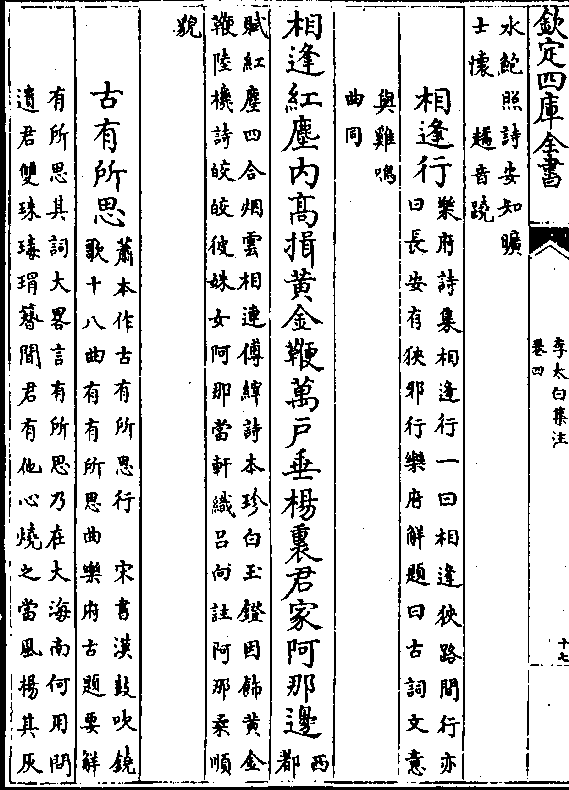 欽定四庫全書
李太白集注
卷四
十七
水鮑照詩安知曠
士懷 趫音蹺
相逢行
樂府詩集相逢行一曰相逢狹路間行亦
曰長安有狹邪行樂府解題曰古詞文意
與雞鳴
曲同
相逢紅塵内高揖黄金鞭萬戸垂楊裏君家阿那邊
西都
賦紅塵四合烟雲相連傅縡詩本珍白玉鐙因飾黄金
鞭陸機詩皎皎彼姝女阿那當軒織吕向註阿那柔順
貌
古有所思
蕭本作古有所思行 宋書漢鼓吹鐃
歌十八曲有有所思曲樂府古題要解
有所思其詞大畧言有所思乃在大海南何用問
遺君雙珠瑇瑁簪聞君有他心燒之當風楊其灰